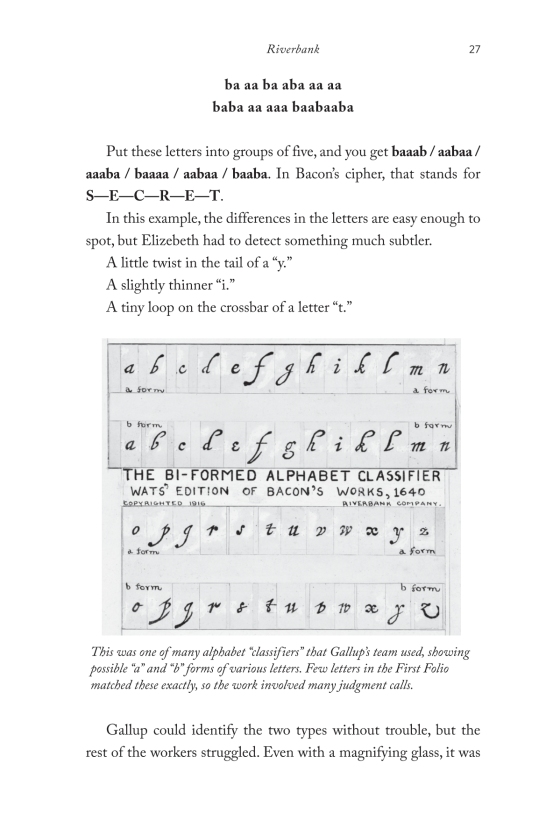 Riverbank 27
ba aa ba aba aa aa
baba aa aaa baabaaba
Put these letters into groups of five, and you get baaab / aabaa /
aaaba / baaaa / aabaa / baaba. In Bacon’s cipher, that stands for
S—E—C—R—E—T.
In this example, the differences in the letters are easy enough to
spot, but Elizebeth had to detect something much subtler.
A little twist in the tail of a “y.”
A slightly thinner “i.”
A tiny loop on the crossbar of a letter “t.”
a b c d e f g h i k l m n
a form a form
b form b form
a b c d e f g h i k l m n
THE BI-FORMED ALPHABET CLASSIFIER
WATS' EDITION OF BACON'S WORKS, 1640
COPYRIGHTED 1916 RIVERBANK COMPANY.
o p q r s t u v w x y z
a form a form
b form b form
o p q r s t u v w x y z
This was one of many alphabet “classifiers” that Gallup’s team used, showing
possible “a” and “b” forms of various letters. Few letters in the First Folio
matched these exactly, so the work involved many judgment calls.
Gallup could identify the two types without trouble, but the
rest of the workers struggled. Even with a magnifying glass, it was